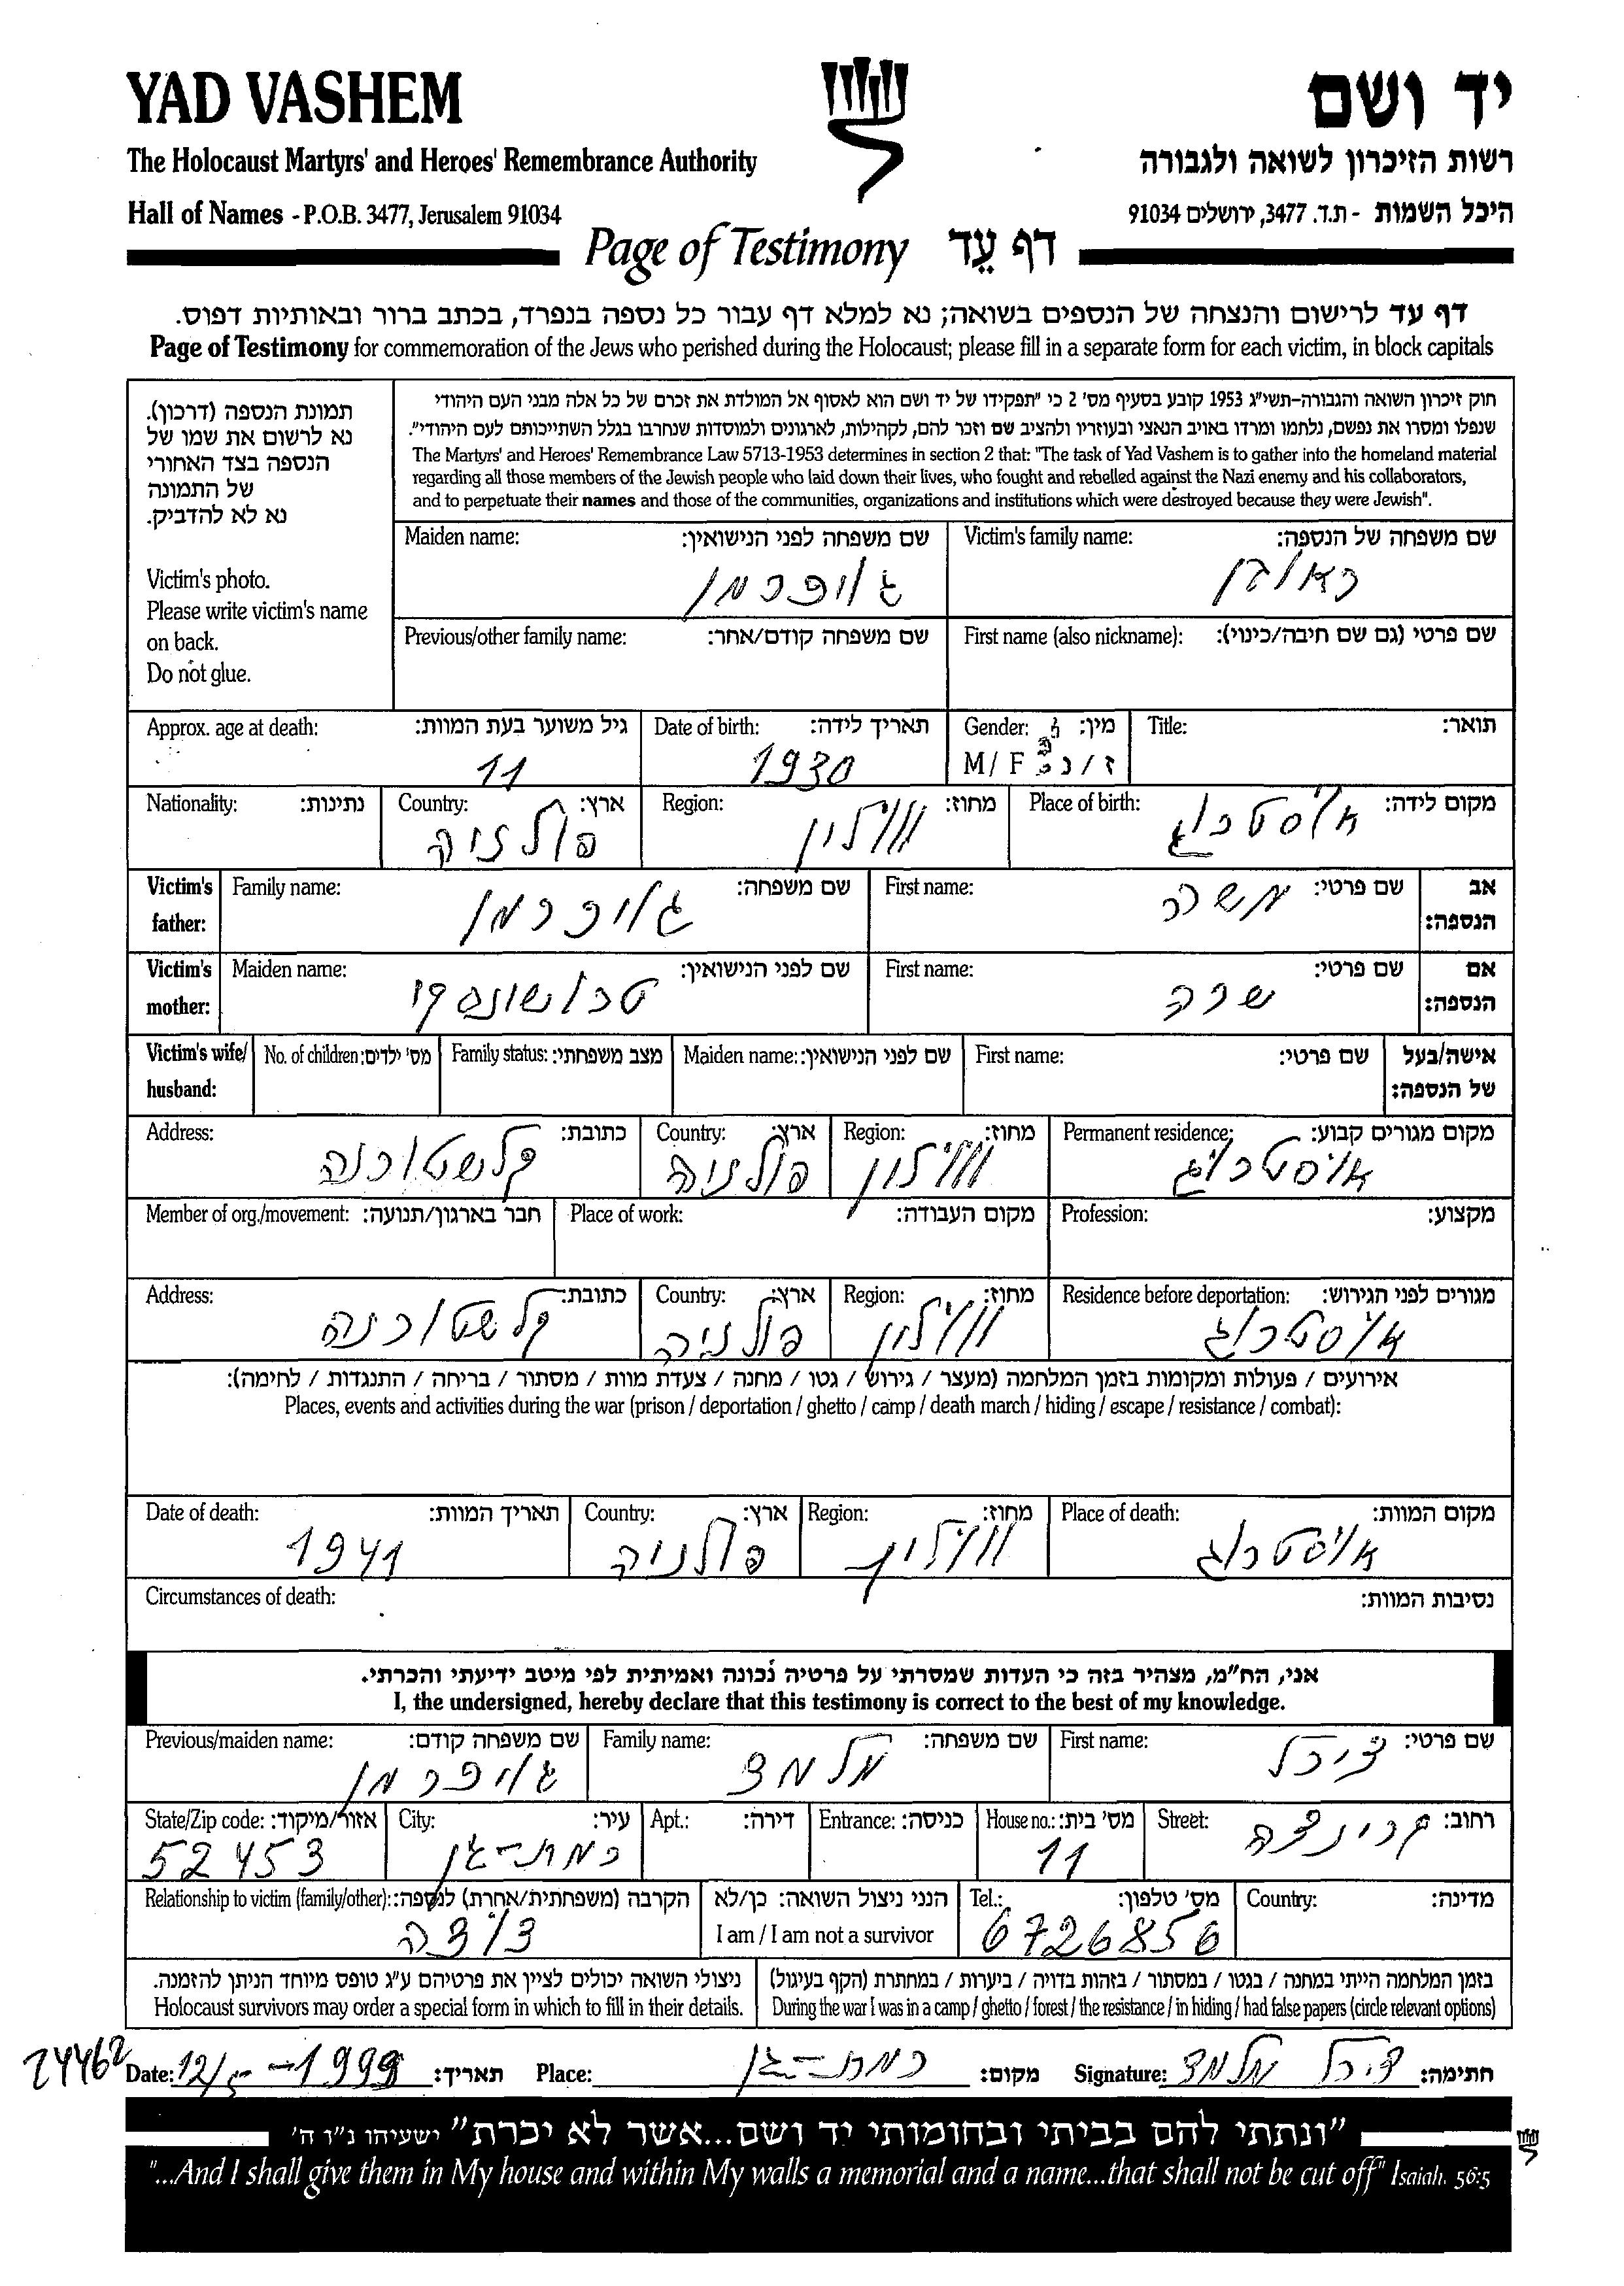 YAD VASHEM
יד ושם
The Holocaust Martyrs' and Heroes' Remembrance Authority
רשות הזיכרון לשואה ולגבורה
Hall of Names - P.O.B. 3477, Jerusalem 91034
היכל השמות - ת.ד. 3477, ירושלים 91034
Page of Testimony דף עֵד
דף עד לרישום והנצחה של הנספים בשואה; נא למלא דף עבור כל נספה בנפרד, בכתב ברור ובאותיות דפוס.
Page of Testimony for commemoration of the Jews who perished during the Holocaust; please fill in a separate form for each victim, in block capitals
תמונת הנספה (דרכון).
נא לרשום את שמו של
הנספה בצד האחורי
של התמונה
נא לא להדביק.
Victim's photo.
Please write victim's name
on back.
Do not glue.
חוק זיכרון השואה והגבורה-תשי"ג 1953 קובע בסעיף מס' 2 כי "תפקידו של יד ושם הוא לאסוף אל המולדת את זכרם של כל אלה מבני העם היהודי
שנפלו ומסרו את נפשם, נלחמו ומרדו באויב הנאצי ובעוזריו ולהציב שם וזכר להם, לקהילות, לארגונים ולמוסדות שנחרבו בגלל השתייכותם לעם היהודי".
The Martyrs' and Heroes' Remembrance Law 5713-1953 determines in section 2 that: "The task of Yad Vashem is to gather into the homeland material
regarding all those members of the Jewish people who laid down their lives, who fought and rebelled against the Nazi enemy and his collaborators,
and to perpetuate their names and those of the communities, organizations and institutions which were destroyed because they were Jewish".
Victim's family name: שם משפחה של הנספה:
ראובן
Maiden name: שם משפחה לפני הנישואין:
גויפרמן
First name (also nickname): שם פרטי (גם שם חיבה/כינוי):
Previous/other family name: שם משפחה קודם/אחר:
Title: תואר:
Gender: מין:
M/ F ז / נ
Date of birth: תאריך לידה:
1930
Approx. age at death: גיל משוער בעת המוות:
11
Place of birth: מקום לידה:
אוסטרוג
Region: מחוז:
ווילון
Country: ארץ:
פולניה
Nationality: נתינות:
Victim's father: אב הנספה:
First name: שם פרטי:
משה
Family name: שם משפחה:
גויפרמן
Victim's mother: אם הנספה:
First name: שם פרטי:
שרה
Maiden name: שם לפני הנישואין:
Victim's wife/ husband: אישה/בעל של הנספה:
First name: שם פרטי:
Maiden name: שם לפני הנישואין:
Family status: מצב משפחתי:
No. of children: מס' ילדים:
Permanent residence: מקום מגורים קבוע:
אוסטרוג
Region: מחוז:
ווילון
Country: ארץ:
פולניה
Address: כתובת:
קלשטורנה
Profession: מקצוע:
Place of work: מקום העבודה:
Member of org./movement: חבר בארגון/תנועה:
Residence before deportation: מגורים לפני הגירוש:
אוסטרוג
Region: מחוז:
ווילון
Country: ארץ:
פולניה
Address: כתובת:
קלשטורנה
אירועים / פעולות ומקומות בזמן המלחמה (מעצר / גירוש / גטו / מחנה / צעדת מוות / מסתור / בריחה / התנגדות / לחימה):
Places, events and activities during the war (prison / deportation / ghetto / camp / death march / hiding / escape / resistance / combat):
Place of death: מקום המוות:
אוסטרוג
Region: מחוז:
ווילון
Country: ארץ:
פולניה
Date of death: תאריך המוות:
1941
Circumstances of death: נסיבות המוות:
אני, הח"מ, מצהיר בזה כי העדות שמסרתי על פרטיה נכונה ואמיתית לפי מיטב ידיעתי והכרתי.
I, the undersigned, hereby declare that this testimony is correct to the best of my knowledge.
First name: שם פרטי:
צירל
Family name: שם משפחה:
מלמד
Previous/maiden name: שם משפחה קודם:
גויפרמן
Street: רחוב:
קריניצה
House no.: מס' בית:
11
Entrance: כניסה:
Apt.: דירה:
City: עיר:
רמת-גן
State/Zip code: אזור/מיקוד:
52453
Country: מדינה:
Tel.: מס' טלפון:
6726856
הנני ניצול השואה: כן/לא
I am / I am not a survivor
Relationship to victim (family/other): הקרבה (משפחתית/אחרת) לנספה:
דודה
בזמן המלחמה הייתי במחנה / בגטו / במסתור / בזהות בדויה / ביערות / במחתרת (הקף בעיגול)
During the war I was in a camp / ghetto / forest / the resistance / in hiding / had false papers (circle relevant options)
ניצולי השואה יכולים לציין את פרטיהם ע"ג טופס מיוחד הניתן להזמנה.
Holocaust survivors may order a special form in which to fill in their details.
24462
Date: 12/5-1999 תאריך:
Place: רמת-גן מקום:
Signature: צירל מלמד חתימה:
"ונתתי להם בביתי ובחומותי יד ושם...אשר לא יכרת" ישעיהו נ"ו ה'
"...And I shall give them in My house and within My walls a memorial and a name...that shall not be cut off" Isaiah. 56:5